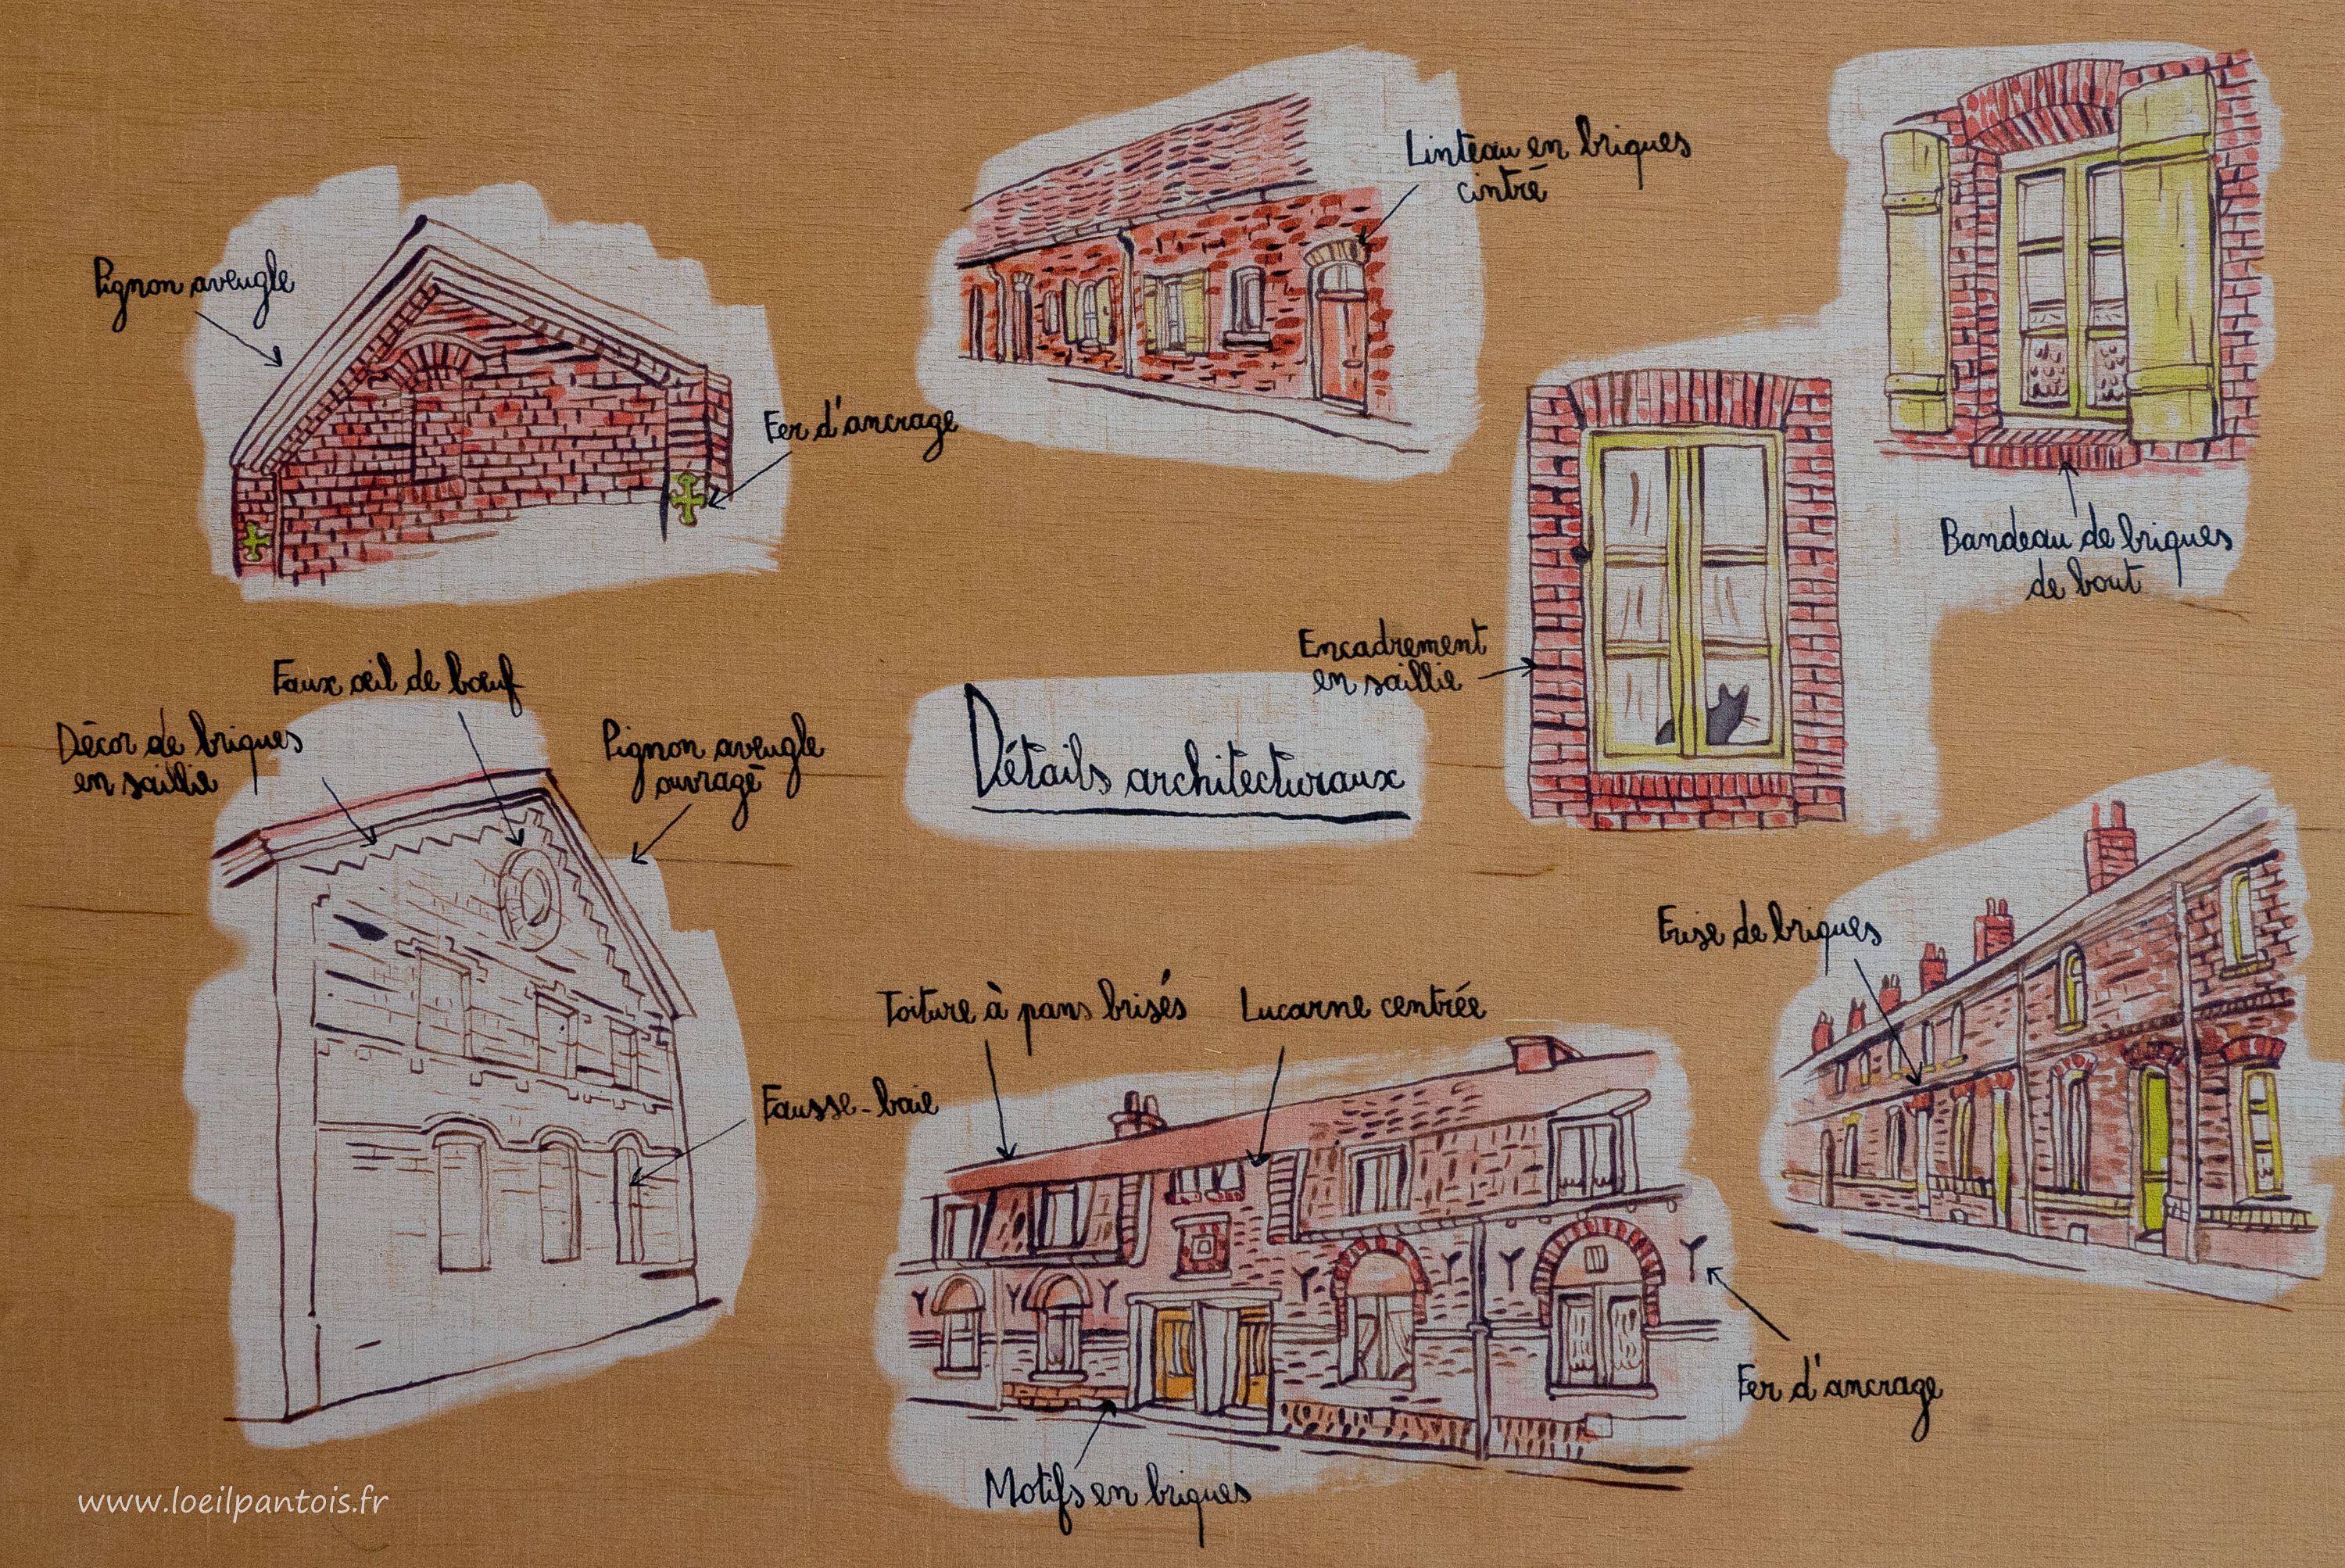 Linteau en briques
cintré
Pignon aveugle
Fer d'ancrage
Bandeau de briques
de bout
Encadrement
en saillie
Faux œil de bœuf
Décor de briques
en saillie
Pignon aveugle
ouvragé
Détails architecturaux
Frise de briques
Toiture à pans brisés
Lucarne centrée
Fausse-baie
Fer d'ancrage
Motifs en briques
www.loeilpantois.fr